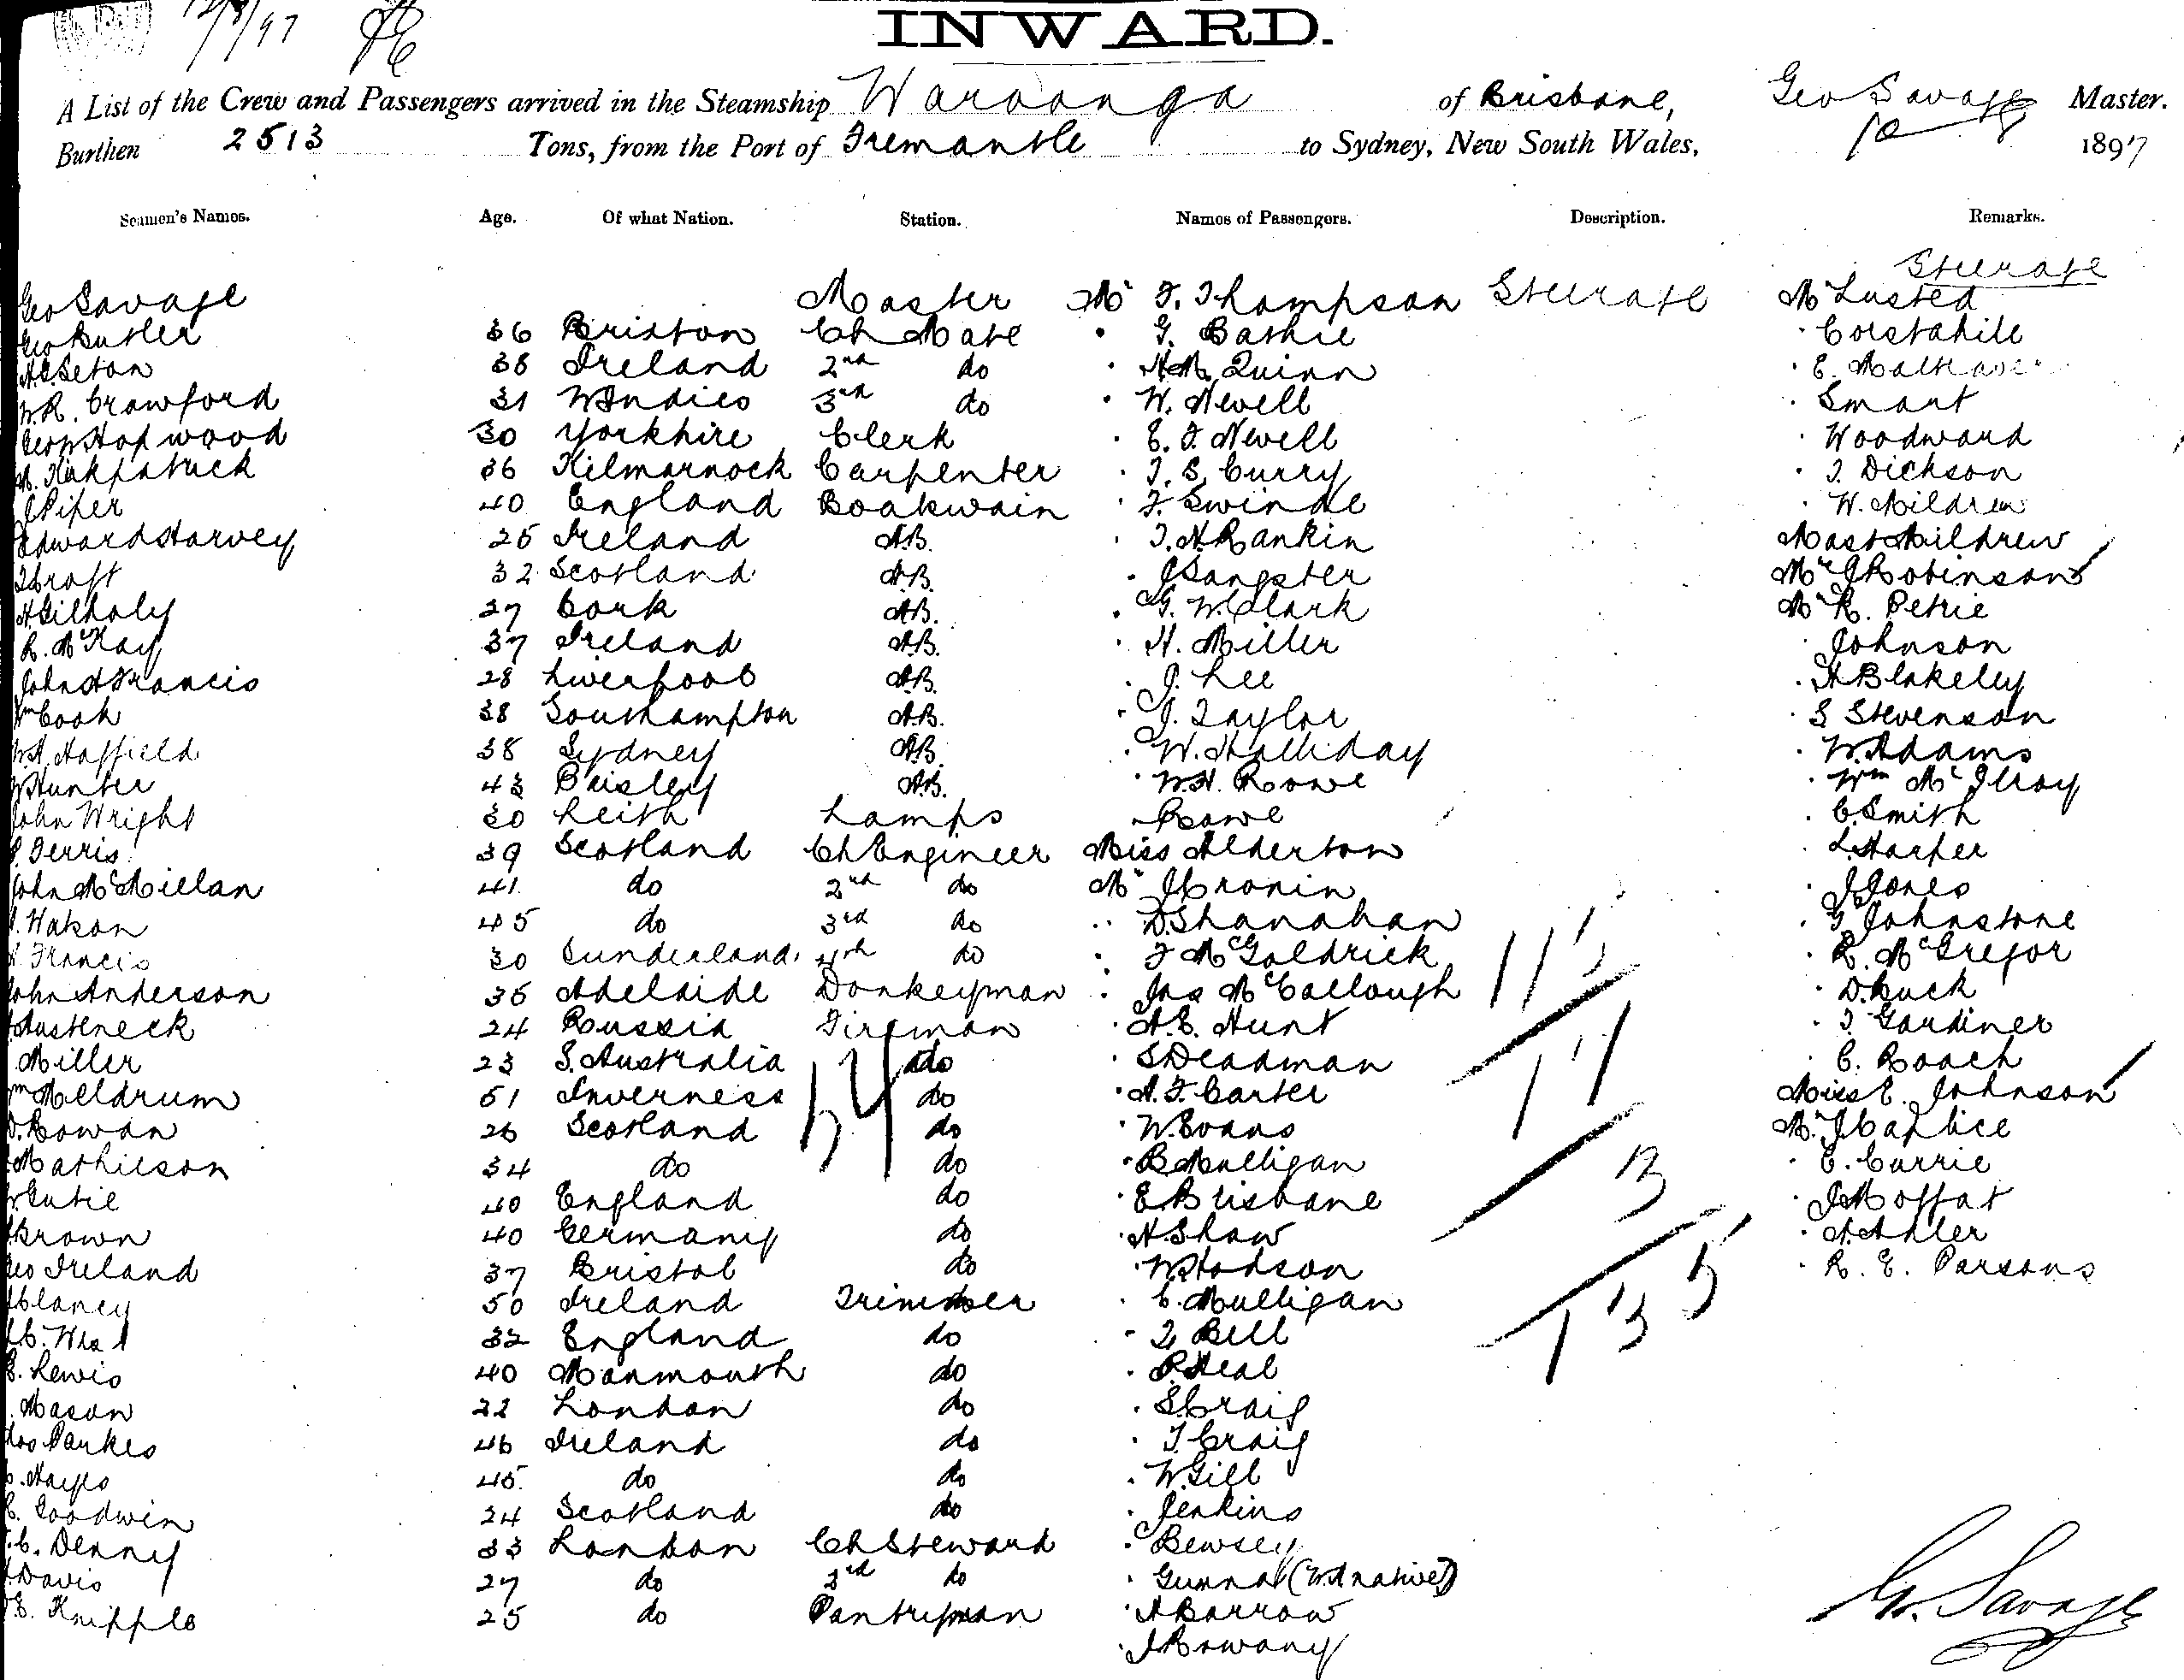 12/8/97
INWARD.
A List of the Crew and Passengers arrived in the Steamship Waroonga of Brisbane, Geo Savage Master.
Burthen 2513 Tons, from the Port of Fremantle to Sydney, New South Wales, 1897
Seamen's Names. Age. Of what Nation. Station. Names of Passengers. Description. Remarks.
Steerage
Geo Savage Master Mr F. Thompson Steerage Mr Lusted
Geo Butler 36 Briston Ch Mate G. Bathie Costahill
Seton 38 Ireland 2nd do Quinn E.
W.R. Crawford 31 W Indies 3rd do W. Newell Smart
Hopwood 30 Yorkhire Clerk E. F. Newell Woodward
Kirkpatrick 36 Kilmarnock Carpenter T. S. Curry T. Dickson
J Piper 40 England Boatswain F. Swindle W. Mildren
Edward Harvey 25 Ireland A.B. T. H. Rankin Mast Mildrew
Croft 32 Scotland A.B. J Sangster Mr J Robinson
Gilholy 27 Cork A.B. G. W. Clark Mr R. Petrie
R. McKay 37 Ireland A.B. H. Miller Johnson
John A Francis 28 Liverpool A.B. J. Lee H Blakeley
Wm Cook 38 Southampton A.B. J. Taylor S Stevenson
W.H. Haffield 38 Sydney A.B. W. Halliday W. Adams
W Hunter 43 Paisley A.B. W.H. Rowe Wm McIlroy
John Wright 30 Leith Lamps Rowe C. Smith
Ferris 39 Scotland Ch Engineer Miss Alderton L. Harper
John McMillan 41 do 2nd do Mr J Cronin J Jones
Watson 45 do 3rd do D. Shanahan G Johnstone
Francis 30 Sunderland 4th do F McGoldrick R. McGregor
John Anderson 35 Adelaide Donkeyman Jas McCallough D. Luck
24 Russia Fireman A. E. Hunt T. Gardiner
Miller 23 S. Australia do S Deadman C. Roach
Wm Melldrum 51 Inverness do A. F. Carter Miss E. Johnson
D. Rowan 26 Scotland do W. Evans Mr J Caplice
Mathieson 34 do do B Mulligan E. Currie
40 England do E. Brisbane J Moffat
Brown 40 Germany do H. Shaw A. Ahler
Geo Ireland 37 Bristol do W Hodson R. E. Parsons
Clancy 50 Ireland Trimmer C. Mulligan
32 England do T. Bell
Lewis 40 Monmouth do P. Heal
Mason 22 London do S. Craig
Parkes 46 Ireland do T. Craig
Hayes 45 do do W Gill
Goodwin 24 Scotland do Jenkins
C. Denny 33 London Ch Steward Bewsey
Davis 27 do do Gunnal (W.A native)
E. Knipple 25 do Pantryman A Barrow
J Rowany
54
111
11
13
135
Geo. Savage